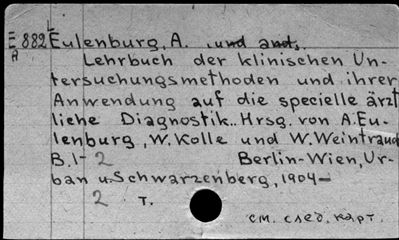 E 882 Eulenburg, A. und and.
A
Lehrbuch der klinischen Un-
tersuchungsmethoden und ihrer
Anwendung auf die specielle ärzt
liche Diagnostik.. Hrsg. von A. Eu-
lenburg, W. Kolle und W. Weintraud
B. I- 2 Berlin-Wien, Ur-
ban u. Schwarzenberg, 1904-
2 т.
см. след. карт.